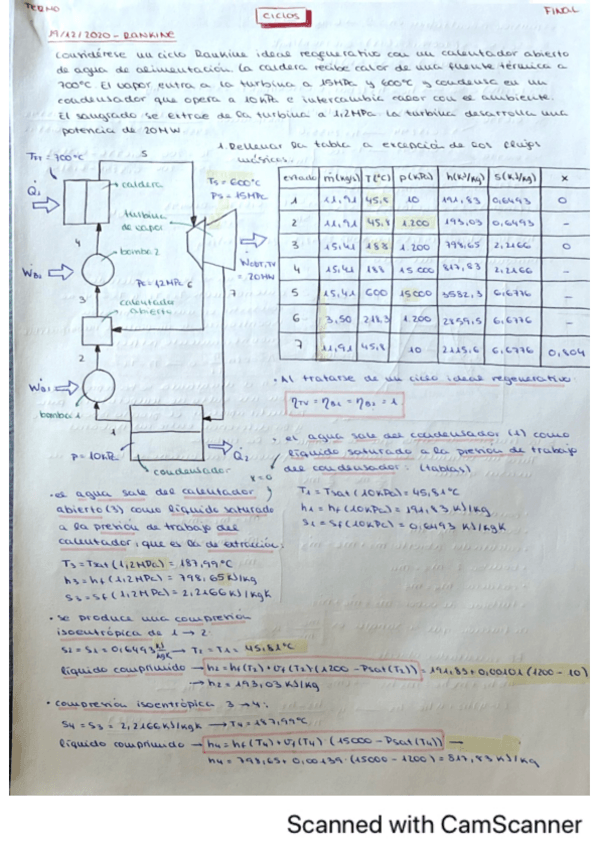 TERMO
CICLOS
FINAL
19/12/2020 - RANKINE
Considérese un ciclo Rankine ideal regenerativo con un calentador abierto
de agua de alimentación. La caldera recibe calor de una fuente térmica a
700°C. El vapor entra a la turbina a 15MPa y 600°C y condensa en un
condensador que opera a 10kPa e intercambia calor con el ambiente.
El sangrado se extrae de la turbina a 1,2MPa. La turbina desarrolla una
potencia de 20MW
1. Rellenar la tabla a excepción de los flujos
másicos.
TFT = 700°C
5
Q1
caldera
T5 = 600°C
P5 = 15MPa
turbina
de vapor
4
bomba 2
ẆB2
ẆNT,TV
= 20MW
6
7
3
calentador
abierto
2
ẆB1
bomba 1
1
P = 10kPa
condensador
Q2
x=0
estado ṁ(kg/s) T(°C) P(kPa) h(kJ/kg) s(kJ/kg) x
1 11,91 45,8 10 191,83 0,6493 0
2 11,91 45,8 1.200 193,03 0,6493 -
3 15,41 188 1.200 798,65 2,2166 0
4 15,41 188 15 000 817,83 2,2166 -
5 15,41 600 15000 3582,3 6,6776 -
6 3,50 218,3 1.200 2859,5 6,6776 -
7 11,91 45,8 10 2115,6 6,6776 0,804
· Al tratarse de un ciclo ideal regenerativo:
ηTV = ηB1 = ηB2 = 1
· el agua sale del condensador (1) como
líquido saturado a la presión de trabajo
del condensador: (tablas)
T1 = Tsat (10kPa) = 45,81°C
h1 = hf (10kPa) = 191,83 kJ/kg
s1 = sf (10kPa) = 0,6493 kJ/kgK
· el agua sale del calentador
abierto (3) como líquido saturado
a la presión de trabajo del
calentador, que es la de extracción:
T3 = Tsat (1,2MPa) = 187,99°C
h3 = hf (1,2MPa) = 798,65 kJ/kg
s3 = sf (1,2MPa) = 2,2166 kJ/kgK
· se produce una compresión
isoentrópica de 1 → 2:
s2 = s1 = 0,6493 kJ/kgK → T2 = T1 = 45,81°C
líquido comprimido → h2 = hf(T2) + vf(T2)(1200 - Psat(T2)) = 191,83 + 0,00101 (1200 - 10)
→ h2 = 193,03 kJ/kg
· compresión isoentrópica 3 → 4:
s4 = s3 = 2,2166 kJ/kgK → T4 = 187,99°C
líquido comprimido → h4 = hf(T4) + vf(T4) · (15000 - Psat(T4)) →
h4 = 798,65 + 0,00139 · (15000 - 1200) = 817,83 kJ/kg
Scanned with CamScanner